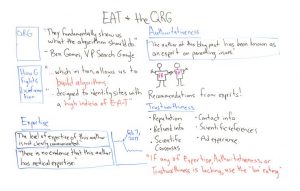 EAT & the QRG
QRG
"They fundamentally show us
what the algorithm should do."
- Ben Gomes, VP Search Google
How G
Fights
"... which in turn, allows us to
build algorithms
designed to identify sites with
a high indicia of EAT
Expertise
The level of expertise of this author
is not clearly communicated.
There is no evidence that this author
has medical expertise.
Feb 7,
2019
Authoritativeness
The author of this blog post has been known as
an expert on parenting more
Recommendations from experts!
Trustworthiness
• Reputation
• Refund info
• Scientific
Consensus
• Contact info
• Scientific references
• Ad experience
"If any of Expertise, Authoritativeness, or
Trustworthiness is lacking, use the 'low' rating"